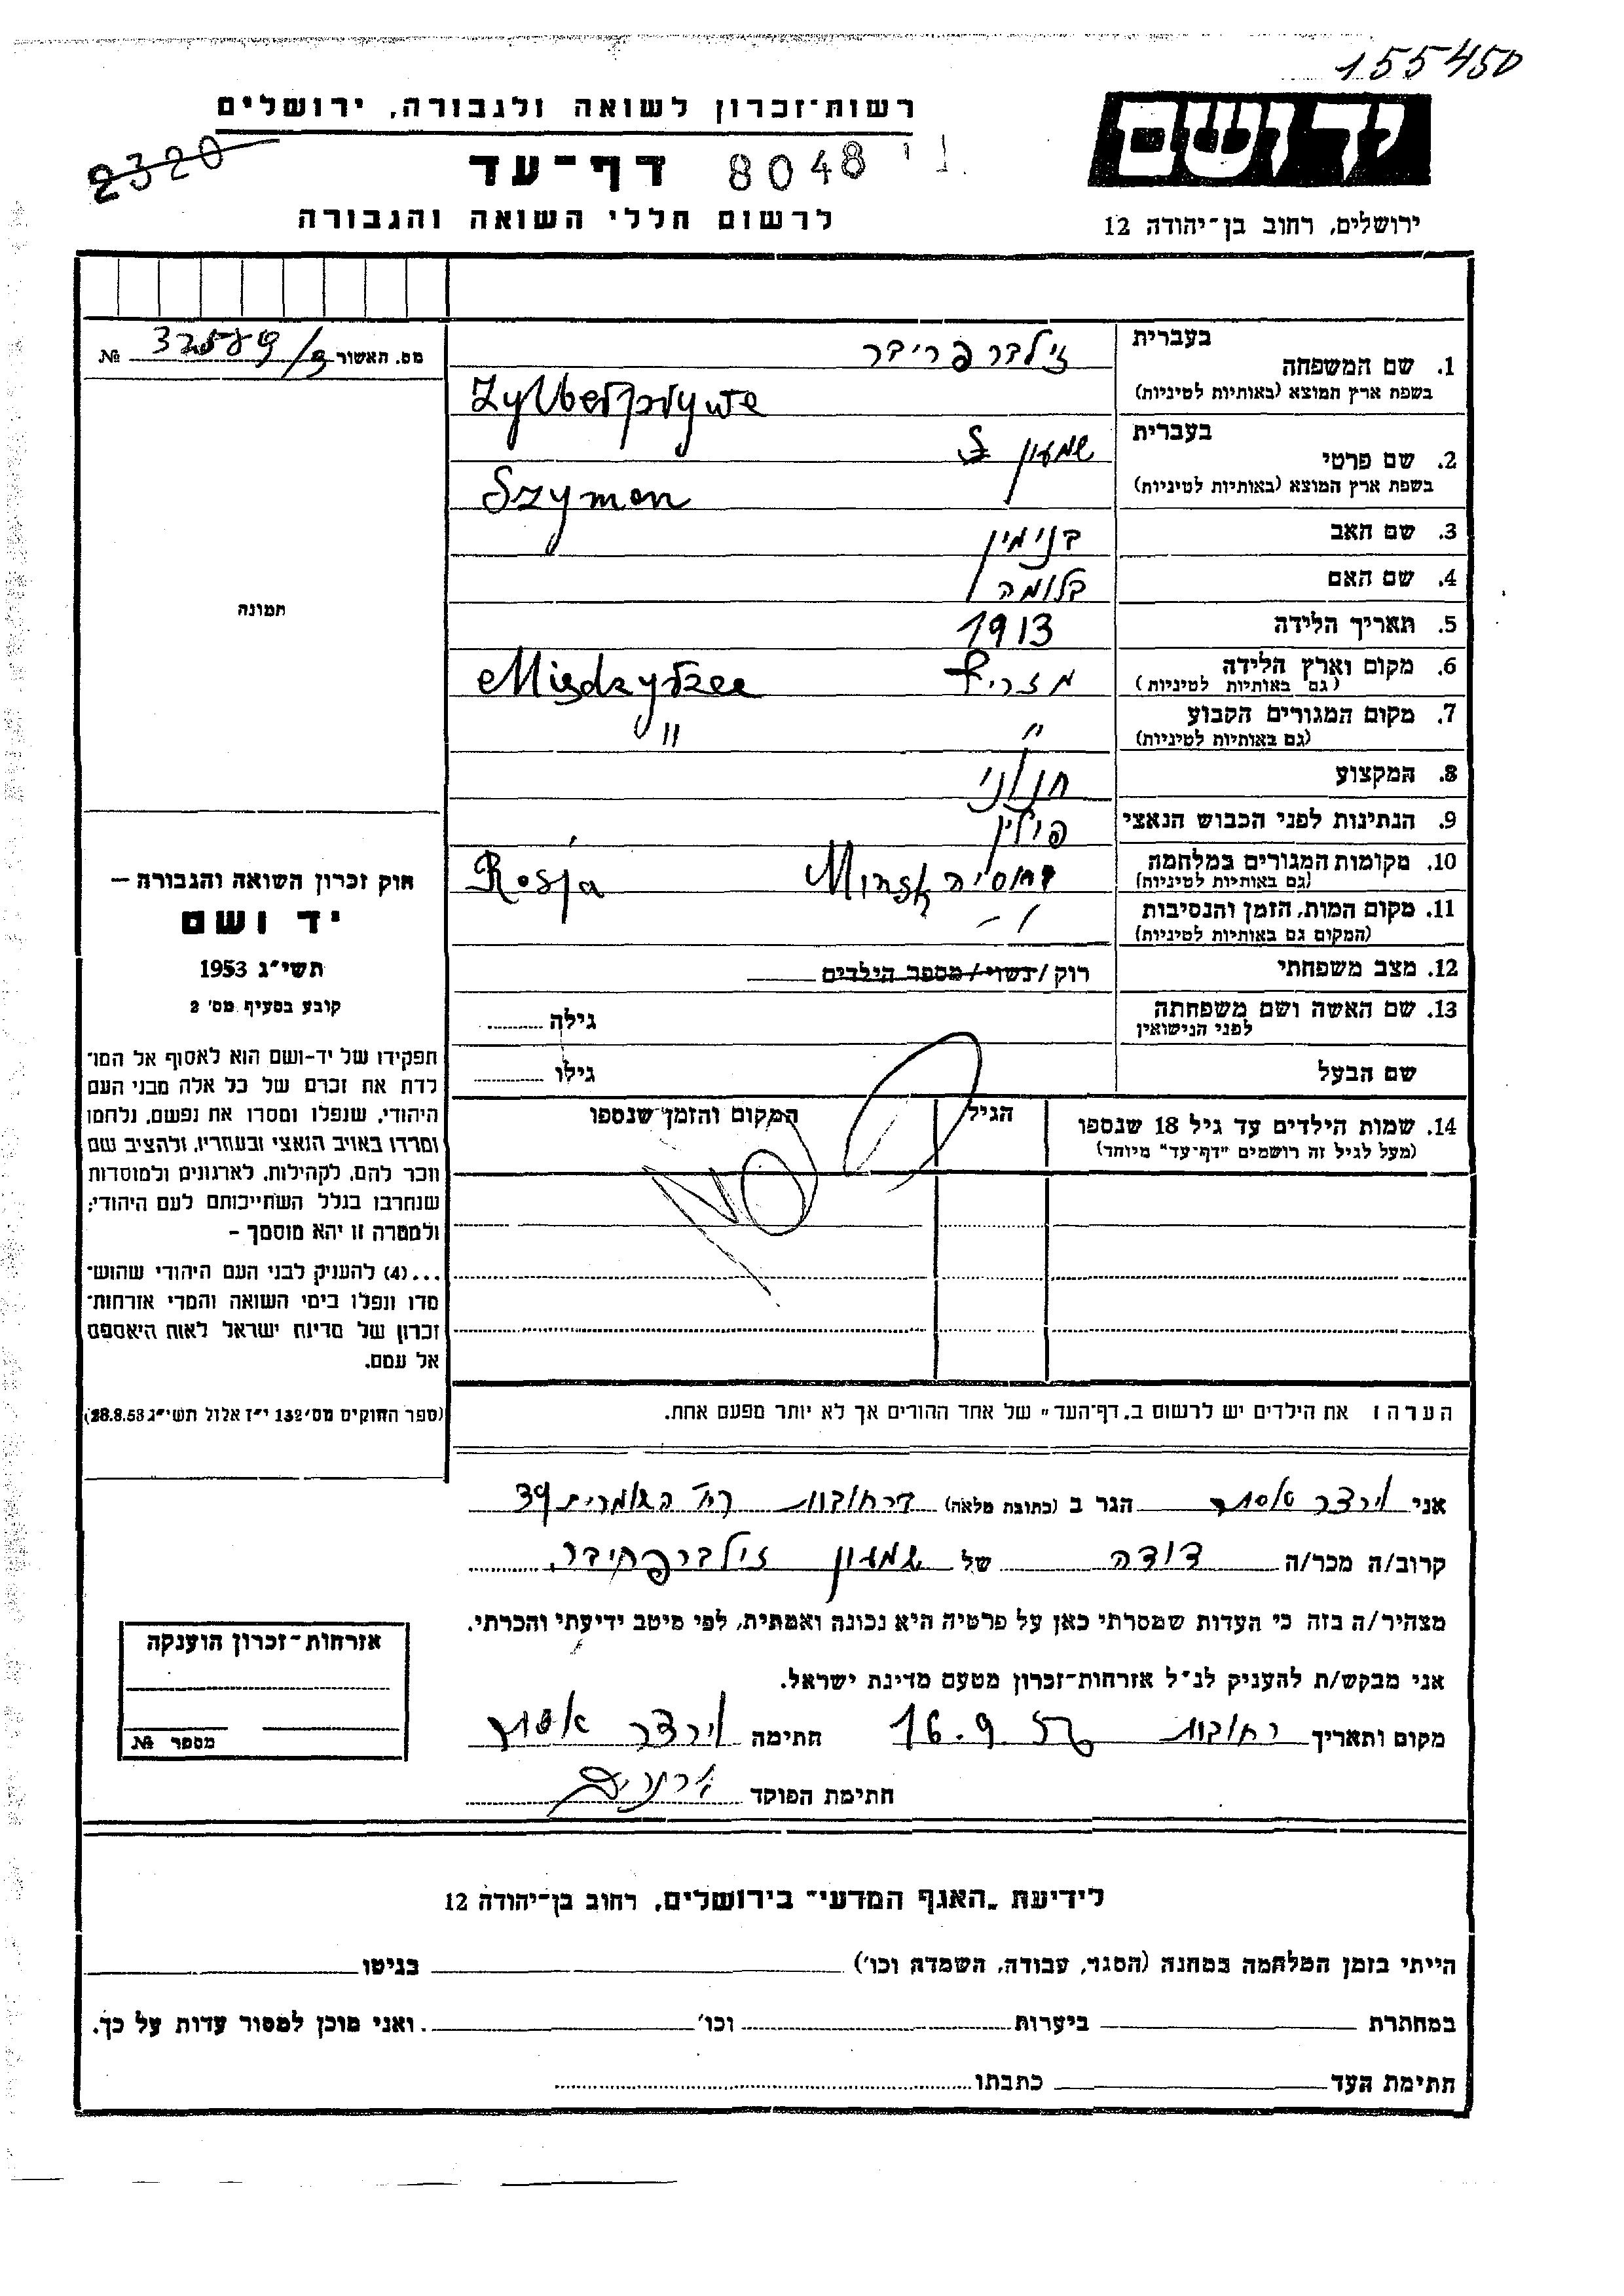 155450
רשות־זכרון לשואה ולגבורה, ירושלים
יד ושם
2320
דף־עד
8048
לרשום חללי השואה והגבורה
ירושלים, רחוב בן־יהודה 12
מס. האשור № 
בעברית
1. שם המשפחה
בשפת ארץ המוצא (באותיות לטיניות)
בעברית
2. שם פרטי שמעון
בשפת ארץ המוצא (באותיות לטיניות) Szymon
3. שם האב בנימין
4. שם האם בלומה
5. תאריך הלידה 1913
6. מקום וארץ הלידה
(גם באותיות לטיניות)
7. מקום המגורים הקבוע " "
(גם באותיות לטיניות)
8. המקצוע
9. הנתינות לפני הכבוש הנאצי פולין
10. מקומות המגורים במלחמה Minsk Rosja
(גם באותיות לטיניות)
11. מקום המות, הזמן והנסיבות
(המקום גם באותיות לטיניות)
12. מצב משפחתי רוק /נשוי/ מספר הילדים
13. שם האשה ושם משפחתה גילה
לפני הנישואין
שם הבעל גילו
14. שמות הילדים עד גיל 18 שנספו הגיל המקום והזמן שנספו
(מעל לגיל זה רושמים "דף־עד" מיוחד)
הערה: את הילדים יש לרשום ב„דף־העד" של אחד ההורים אך לא יותר מפעם אחת.
תמונה
חוק זכרון השואה והגבורה –
יד ושם
תשי״ג 1953
קובע בסעיף מס׳ 2
תפקידו של יד-ושם הוא לאסוף אל המו־
לדת את זכרם של כל אלה מבני העם
היהודי, שנפלו ומסרו את נפשם, נלחמו
ומרדו באויב הנאצי ובעוזריו, ולהציב שם
וזכר להם, לקהילות, לארגונים ולמוסדות
שנחרבו בגלל השתייכותם לעם היהודי;
ולמטרה זו יהא מוסמך –
...(4) להעניק לבני העם היהודי שהוש־
מדו ונפלו בימי השואה והמרי אזרחות־
זכרון של מדינת ישראל לאות היאספם
אל עמם.
(ספר החוקים מס׳ 132 י״ז אלול תשי״ג 28.8.53)
אני הגר ב (כתובת מלאה) ברחובות
קרוב/ה מכר/ה דודה של שמעון
מצהיר/ה בזה כי העדות שמסרתי כאן על פרטיה היא נכונה ואמתית, לפי מיטב ידיעתי והכרתי.
אני מבקש/ת להעניק לנ״ל אזרחות־זכרון מטעם מדינת ישראל.
מקום ותאריך רחובות 16.9.56 חתימה
חתימת הפוקד
אזרחות־זכרון הוענקה
מספר №
לידיעת „האגף המדעי" בירושלים, רחוב בן־יהודה 12
הייתי בזמן המלחמה במחנה (הסגר, עבודה, השמדה וכו׳) בגיטו
במחתרת ביערות וכו׳ . ואני מוכן למסור עדות על כך.
חתימת העד כתבתו